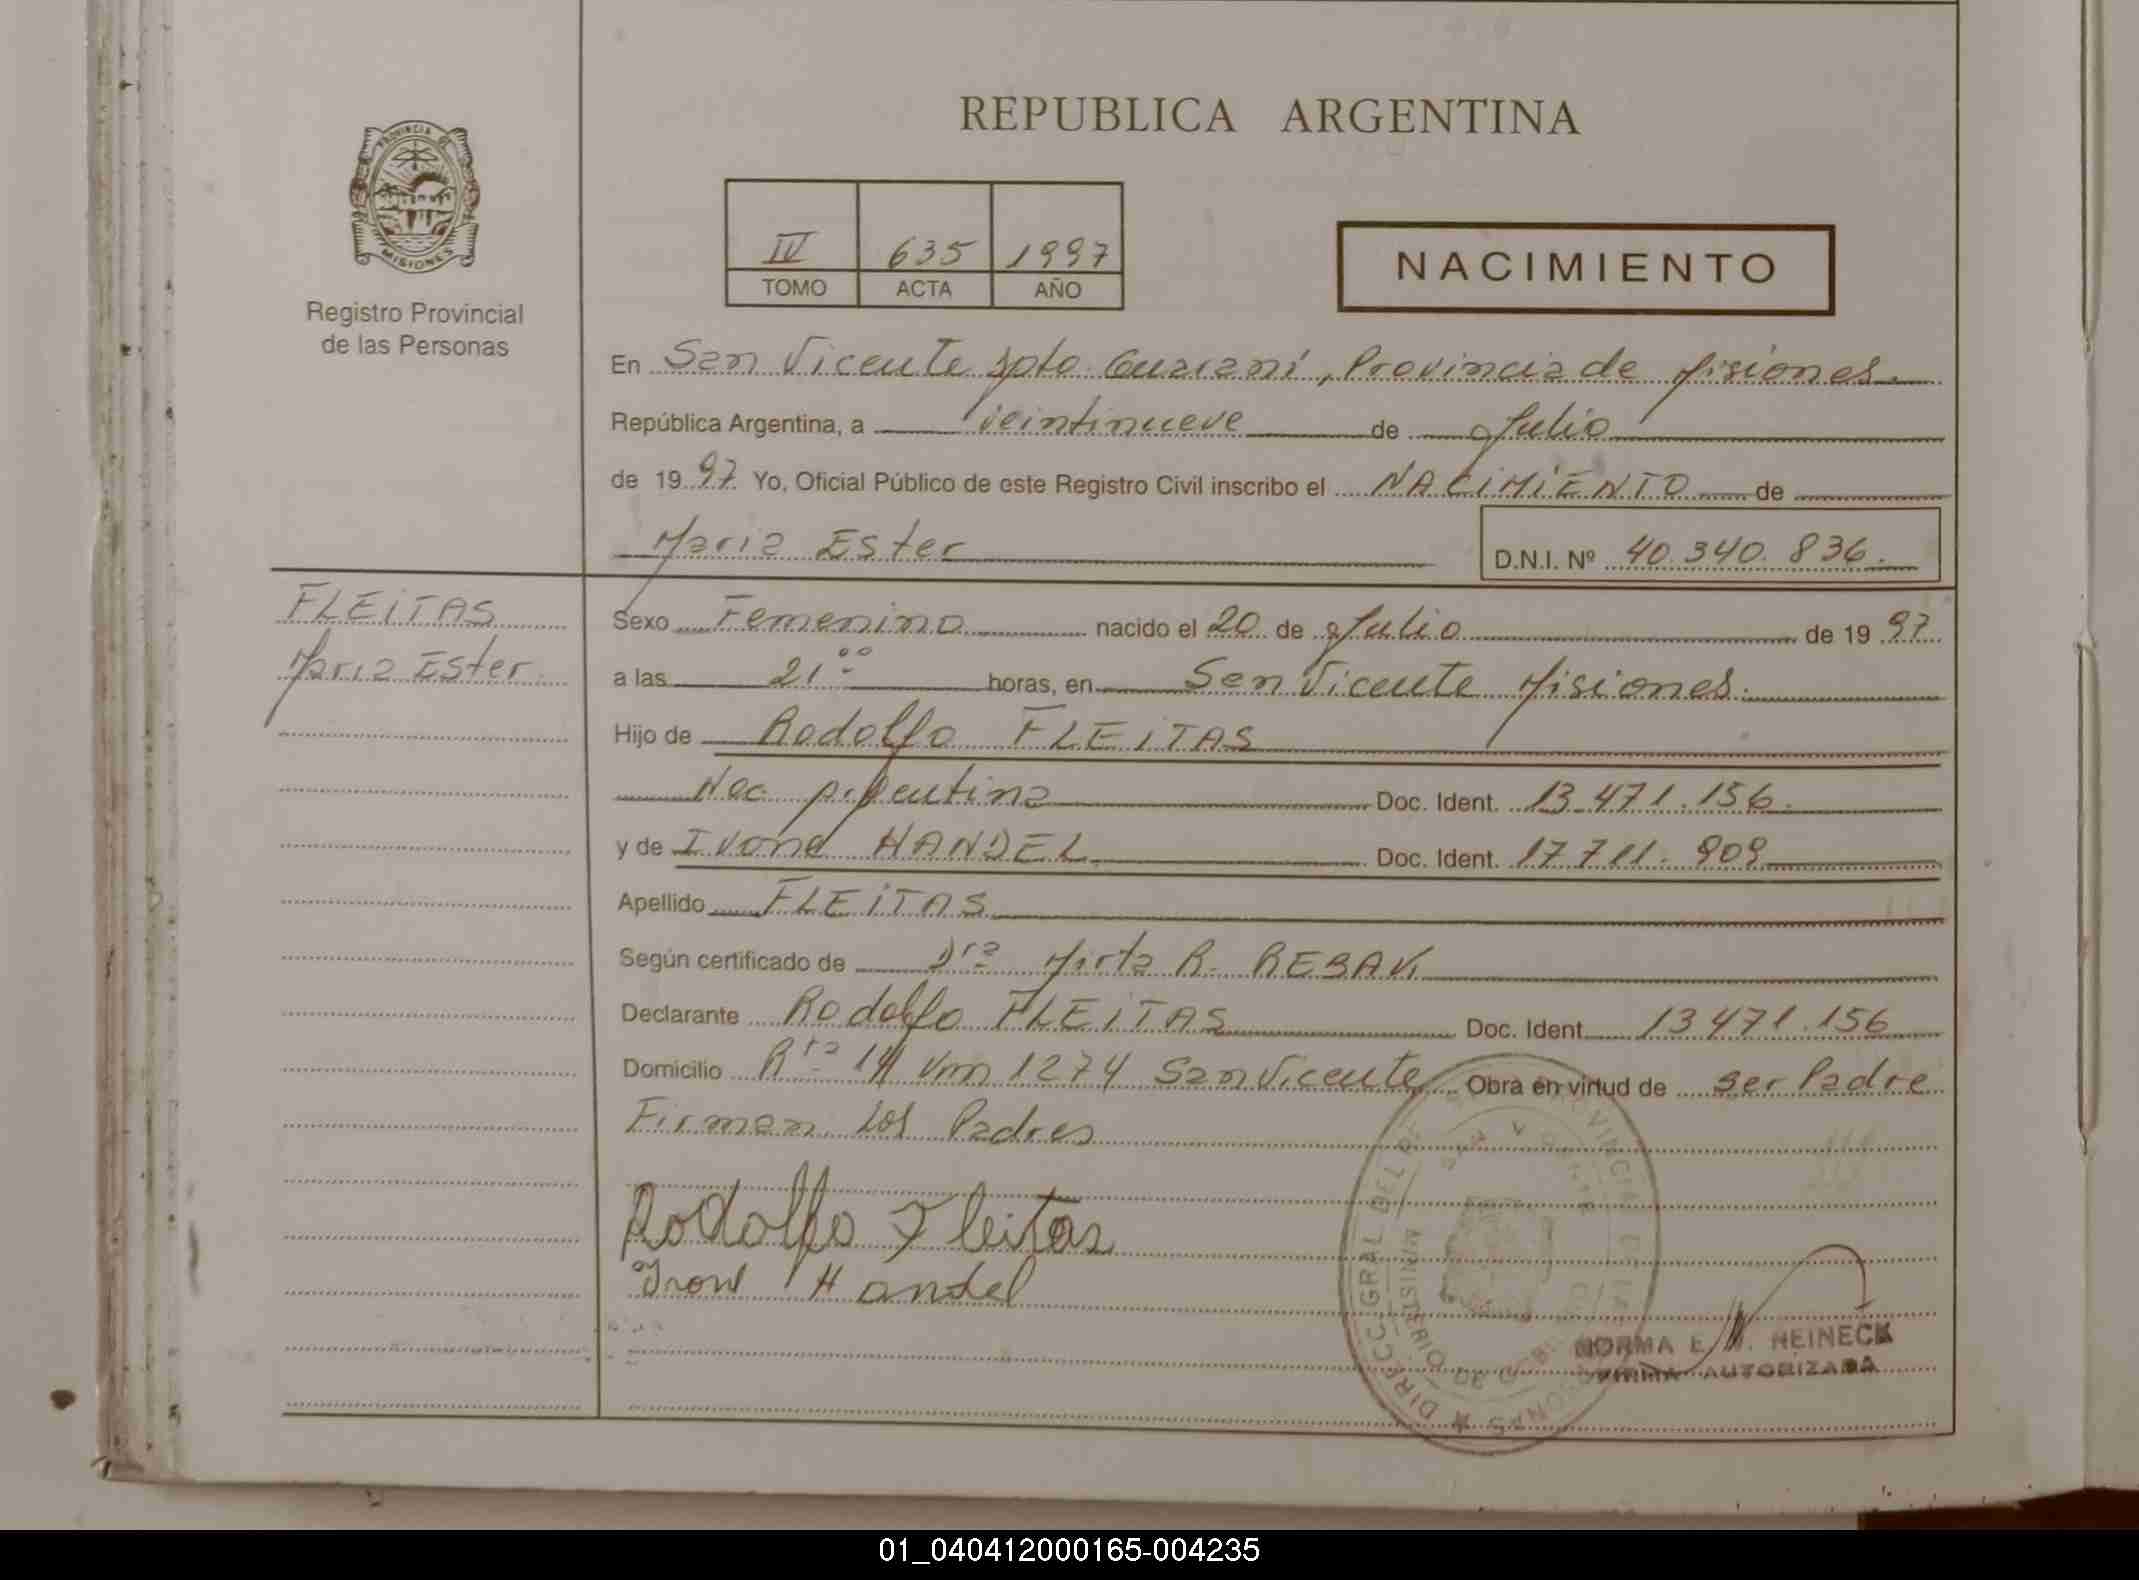 REPUBLICA ARGENTINA
PROVINCIA DE
MISIONES
Registro Provincial
de las Personas
IV 635 1997
TOMO ACTA AÑO
NACIMIENTO
En San Vicente Dpto Guaraní, Provincia de Misiones.
República Argentina, a veintinueve de Julio
de 1997 Yo, Oficial Público de este Registro Civil inscribo el NACIMIENTO de
Maria Ester D.N.I. Nº 40.340.836.
FLEITAS
Maria Ester
Sexo Femenino nacido el 20 de Julio de 1997
a las 21°° horas, en San Vicente Misiones.
Hijo de Rodolfo FLEITAS
Nac. Argentina Doc. Ident. 13.471.156.
y de Ivone HANDEL Doc. Ident. 17.711.909
Apellido FLEITAS
Según certificado de Dra Mirta R.
Declarante Rodolfo FLEITAS Doc. Ident. 13.471.156
Domicilio Rta 14 Km 1274 San Vicente Obra en virtud de ser Padre
Firman los Padres
Rodolfo Fleitas
Handel
DIRECC. GRAL DEL
NORMA E. HEINECK
FIRMA AUTORIZADA
01_040412000165-004235